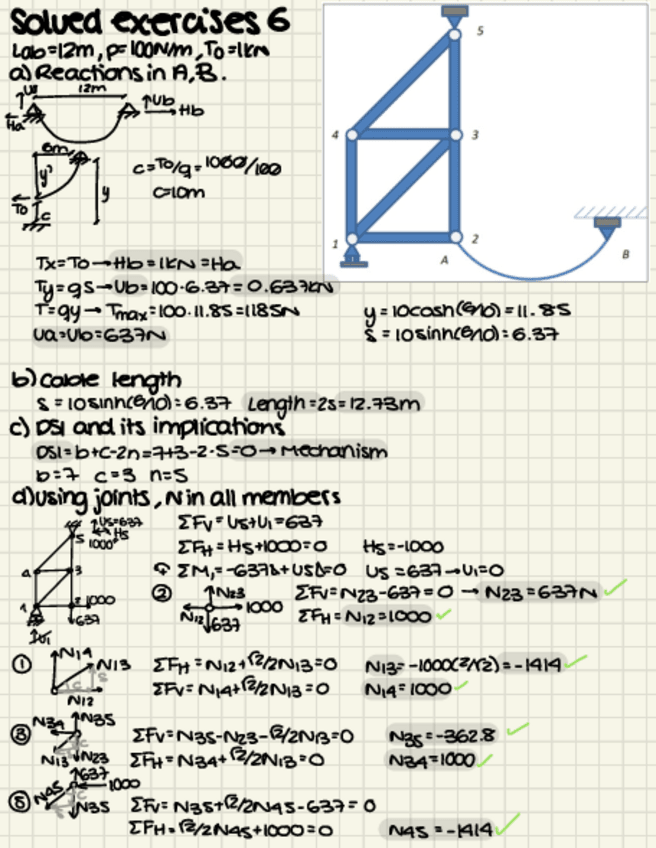 Solved exercises 6
Lab=12m, p=100N/m, To=1kN
a) Reactions in A, B.
12m
Ub
Hb
Ha
6m
y'
y
To
c
c=To/q=1000/100
c=10m
5
4
3
1
2
A
B
Tx=To→Hb=1kN=Ha
Ty=qs→Ub=100·6.37=0.637kN
T=qy→Tmax=100·11.85=1185N
Ua=Ub=637N
y=10cosh(6/10)=11.85
s=10sinh(6/10)=6.37
b) Cable length
s=10sinh(6/10)=6.37 Length=2s=12.73m
c) DSI and its implications
DSI=b+c-2n=7+3-2·5=0→Mechanism
b=7 c=3 n=5
d) Using joints, N in all members
U5=637
H5
1000
5
4
3
1
1000
637
U1
ΣFv=U5+U1=637
ΣFH=H5+1000=0 H5=-1000
ΣM1=-637Δ+U5Δ=0 U5=637→U1=0
② N23 1000 N12 637 ΣFv=N23-637=0 → N23=637N
ΣFH=N12=1000
① N14 N13 N12 ΣFH=N12+√2/2N13=0 N13=-1000(2/√2)=-1414
ΣFv=N14+√2/2N13=0 N14=1000
③ N34 N35 N13 N23 ΣFv=N35-N23-√2/2N13=0 N35=-362.8
ΣFH=N34+√2/2N13=0 N34=1000
⑤ N45 637 1000 N35 ΣFv=N35+√2/2N45-637=0
ΣFH=√2/2N45+1000=0 N45=-1414